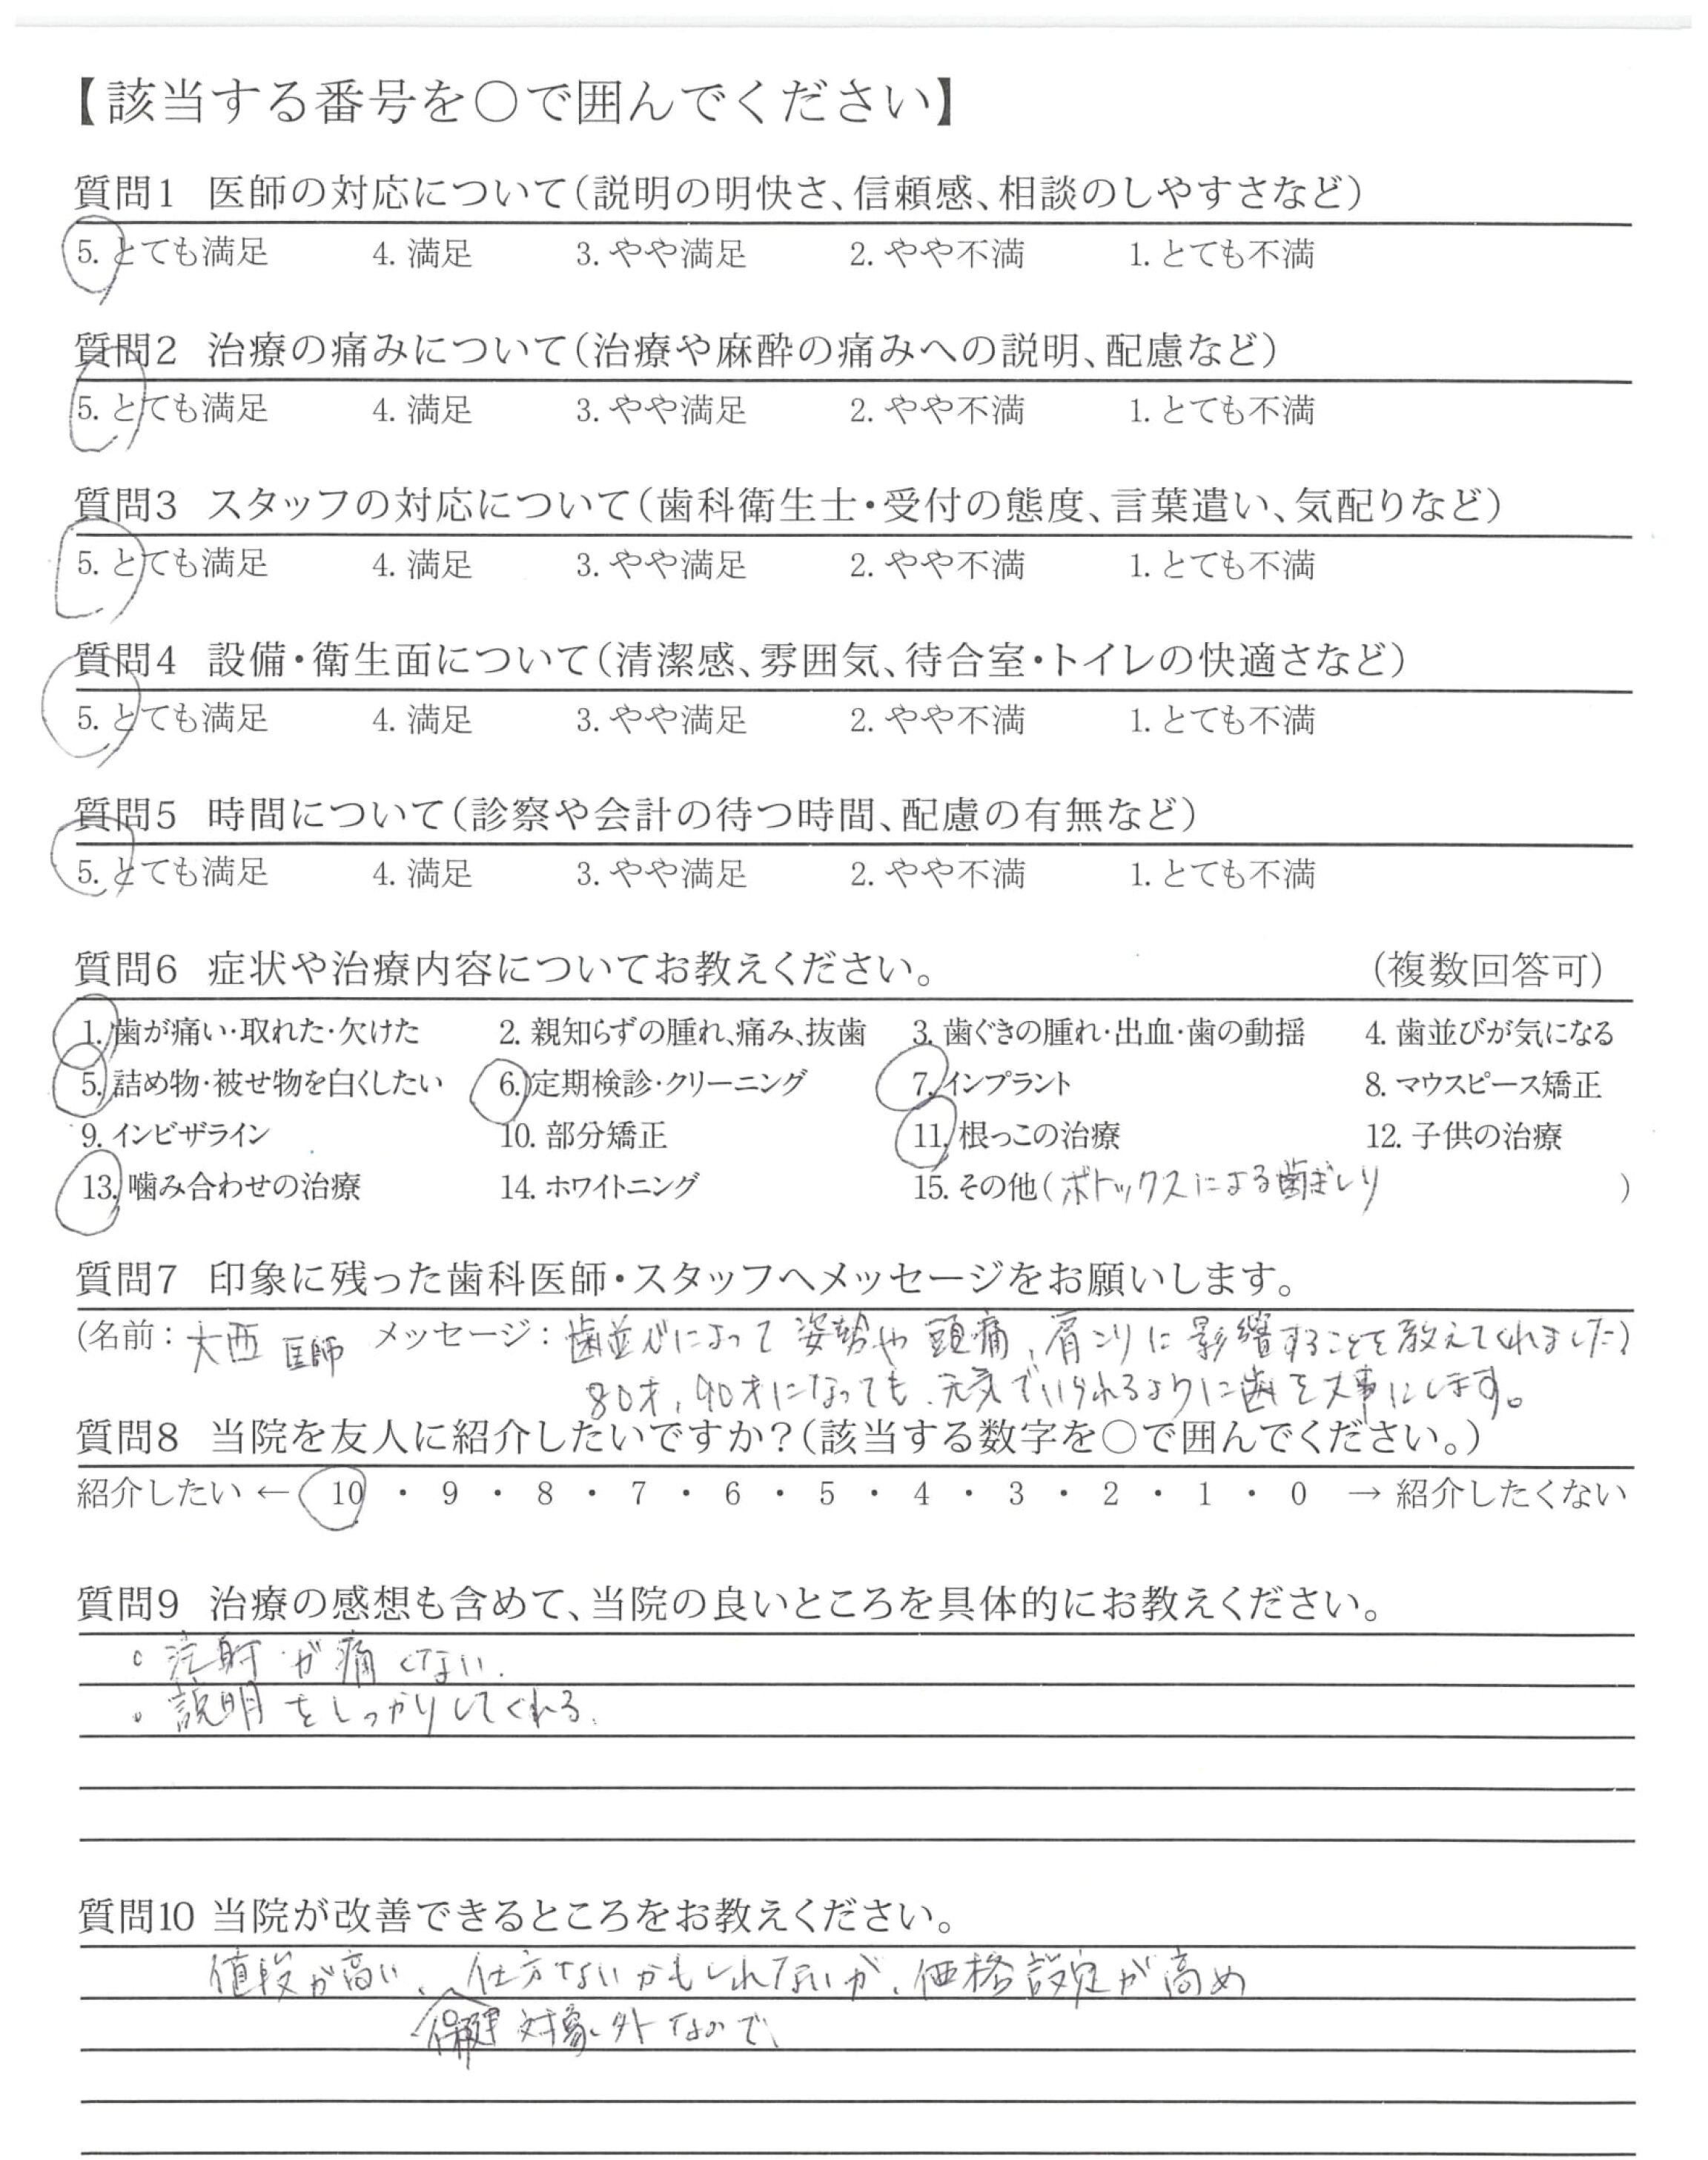 【該当する番号を○で囲んでください】
質問1 医師の対応について(説明の明快さ、信頼感、相談のしやすさなど)
5. とても満足 4. 満足 3. やや満足 2. やや不満 1. とても不満
質問2 治療の痛みについて(治療や麻酔の痛みへの説明、配慮など)
5. とても満足 4. 満足 3. やや満足 2. やや不満 1. とても不満
質問3 スタッフの対応について(歯科衛生士・受付の態度、言葉遣い、気配りなど)
5. とても満足 4. 満足 3. やや満足 2. やや不満 1. とても不満
質問4 設備・衛生面について(清潔感、雰囲気、待合室・トイレの快適さなど)
5. とても満足 4. 満足 3. やや満足 2. やや不満 1. とても不満
質問5 時間について(診察や会計の待つ時間、配慮の有無など)
5. とても満足 4. 満足 3. やや満足 2. やや不満 1. とても不満
質問6 症状や治療内容についてお教えください。 (複数回答可)
1. 歯が痛い・取れた・欠けた 2. 親知らずの腫れ、痛み、抜歯 3. 歯ぐきの腫れ・出血・歯の動揺 4. 歯並びが気になる
5. 詰め物・被せ物を白くしたい 6. 定期検診・クリーニング 7. インプラント 8. マウスピース矯正
9. インビザライン 10. 部分矯正 11. 根っこの治療 12. 子供の治療
13. 噛み合わせの治療 14. ホワイトニング 15. その他(ボトックスによる歯ぎしり )
質問7 印象に残った歯科医師・スタッフへメッセージをお願いします。
(名前：大西 医師 メッセージ：歯並びによって姿勢や頭痛、肩こりに影響することを教えてくれました)
80才、90才になっても、元気でいられるように歯を大事にします。
質問8 当院を友人に紹介したいですか?(該当する数字を○で囲んでください。)
紹介したい ← 10 ・ 9 ・ 8 ・ 7 ・ 6 ・ 5 ・ 4 ・ 3 ・ 2 ・ 1 ・ 0 → 紹介したくない
質問9 治療の感想も含めて、当院の良いところを具体的にお教えください。
。注射が痛くない.
。説明をしっかりしてくれる.
質問10 当院が改善できるところをお教えください。
値段が高い、仕方ないかもしれないが、価格設定が高め
保健対象外なので、